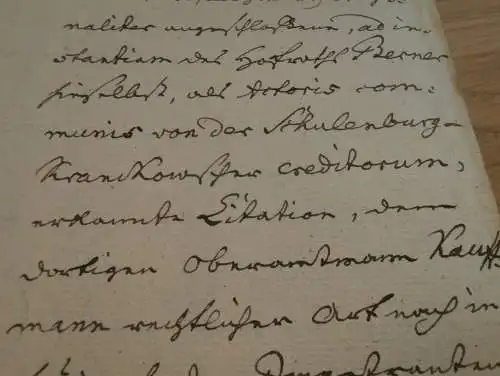 naliter angeschloßene, ad in-
stantiam des Hofraths Berner
hieselbst, als Actoris com-
munis von der Schulenburg-
Kranckowscher Creditorum,
erkannte Citation, dem
dortigen Oberamtmann Kauff-
mann rechtlicher Art nach in